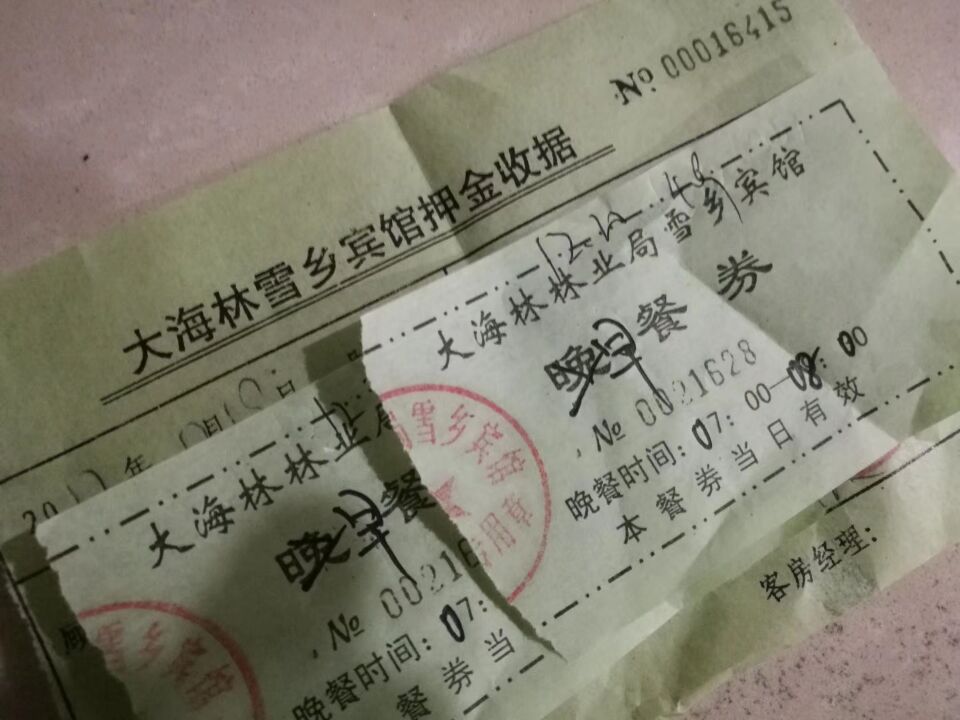 No 00016415
大海林雪乡宾馆押金收据
大海林林业局雪乡宾馆
早餐券
No 0021628
晚餐时间：07：00—08：00
本餐券当日有效
客房经理：
大海林林业局
早餐
No 00216
晚餐时间：07：
餐券当
雪乡宾馆
专用章
雪乡宾馆